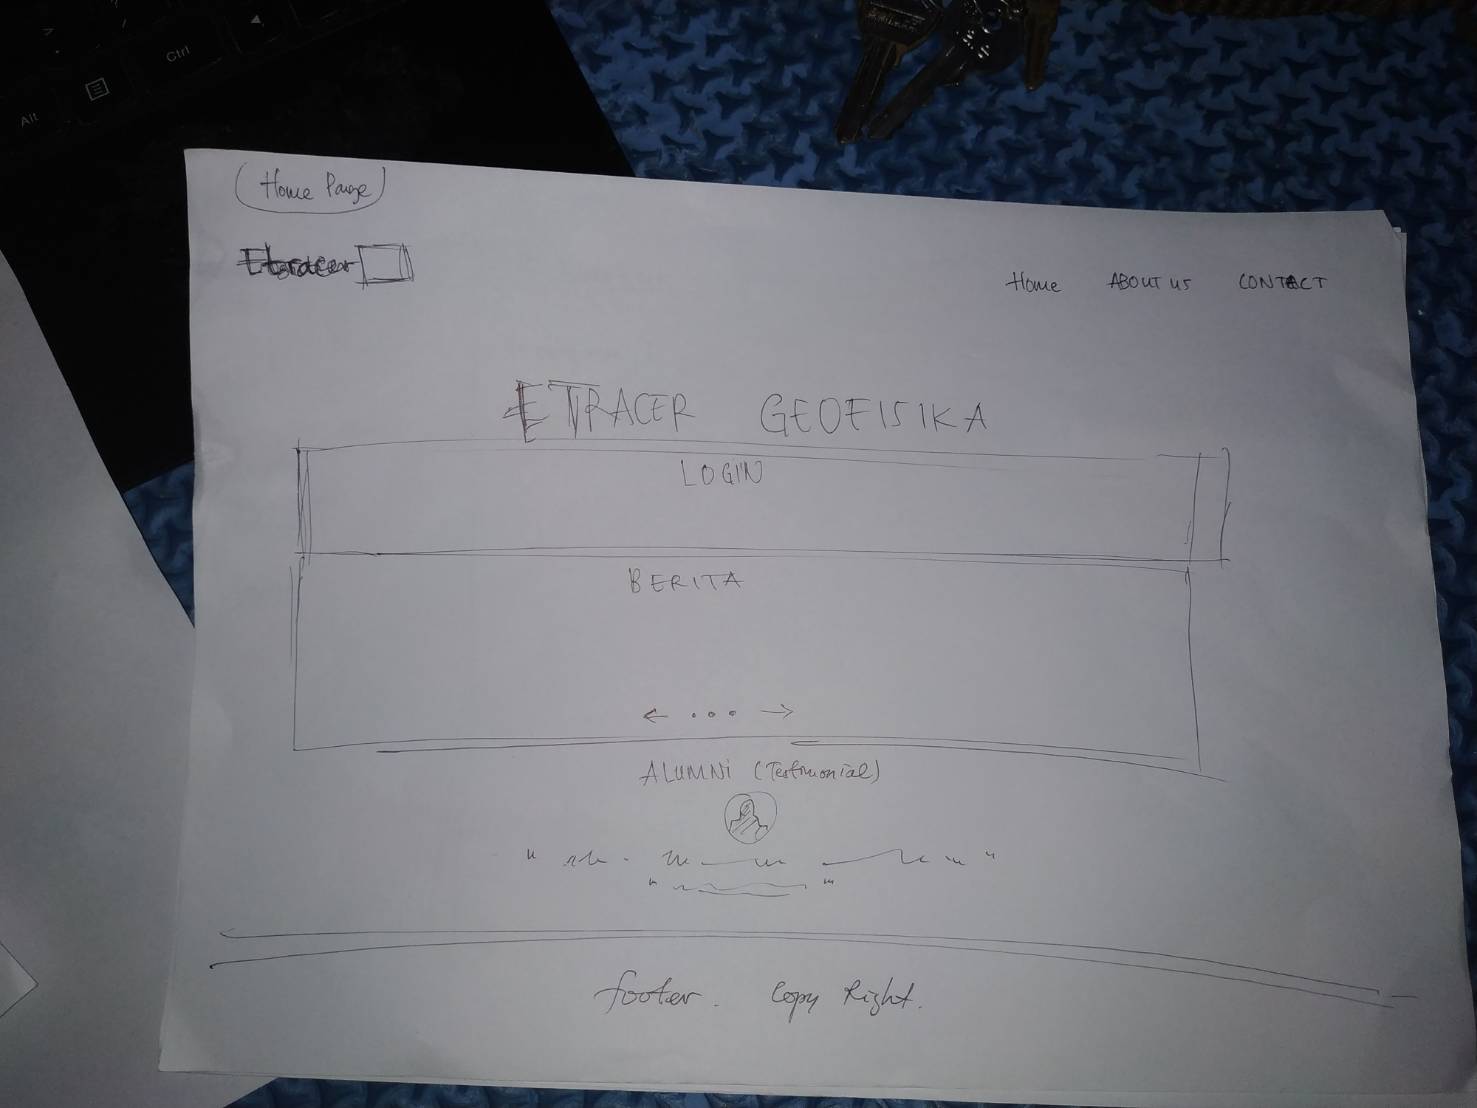 Alt
Ctrl
Home Page
Etracer
Home ABOUT US CONTACT
ETRACER GEOFISIKA
LOGIN
BERITA
← ... →
ALUMNI (Testimonial)
footer. Copy Right.